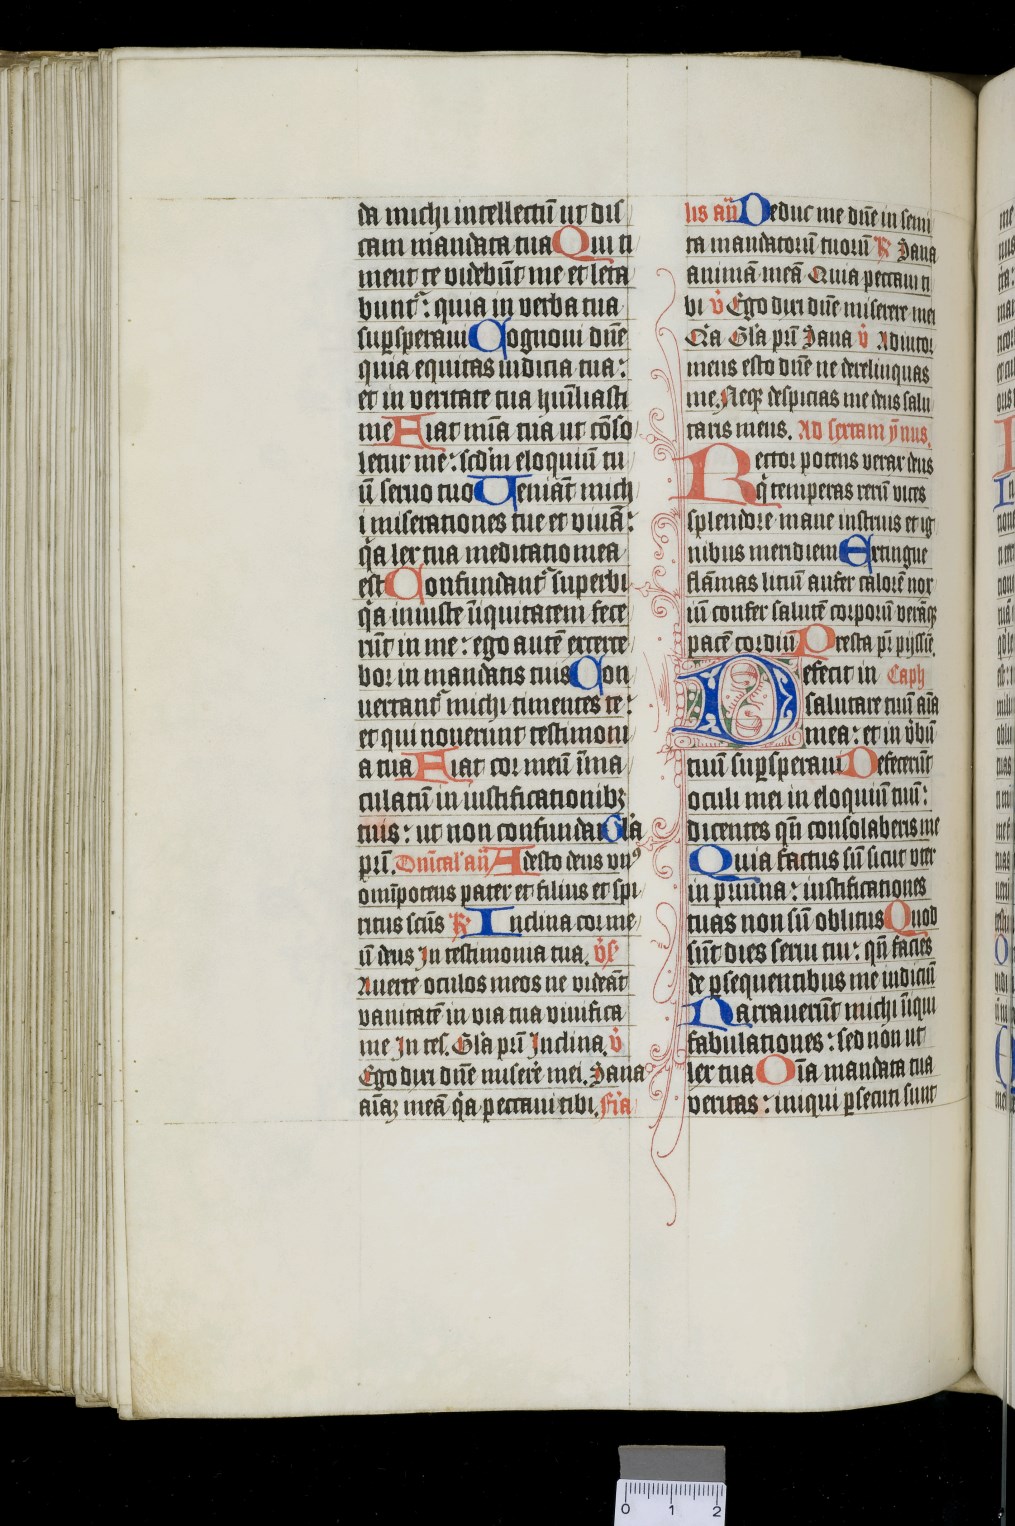 da michi intellectū ut dis
cam mandata tua Qui ti
ment te videbūt me et leta
bunt᷑: quia in verba tua
suꝑsperaui Cognoui dn̄e
quia equitas iudicia tua:
et in veritate tua hūiliasti
me Fiat mīa tua ut cōso
letur me: scd̄m eloquiū tu
ū seruo tuo Ueniāt mich
i miserationes tue et viuā:
q̄a lex tua meditatio mea
est Confundant᷑ superbi
q̄a iniuste īiquitatem fece
rūt in me: ego autē exerce
bor in mandatis tuis Con
uertant᷑ michi timentes te:
et qui nouerunt testimoni
a tua Fiat cor meū īma
culatū in iustificationibꝫ
tuis: ut non confundar Gl̄a
pr̄i. Dn̄ical' an̄ Adesto deus vnꝰ
omīpotens pater et filius et spi
ritus sc̄us ℟ Inclina cor me
ū deus In testimonia tua. v̄s̄
Auerte oculos meos ne videāt
vanitatē in via tua viuifica
me In tes. Gl̄a pr̄i Inclina. v̄
Ego dixi dn̄e miserē mei. Sana
aīaꝫ meā q̄a peccaui tibi. Fīa
lis an̄ Deduc me dn̄e in semi
ta mandatorū tuorū ℟ Sana
animā meā Quia peccaui ti
bi v̄ Ego dixi dn̄e miserere mei
Q̄a Gl̄a pr̄i Sana v̄ Adiutor
meus esto dn̄e ne derelinquas
me. Neqꝫ despicias me deus salu
taris meus. Ad sextam ȳnus.
Rector potens verax deus
q̄ temperas rerū vices
splendore mane instruis et ig
nibus meridiem Extingue
flāmas litiū aufer calorē nox
iū confer salutē corporū verāqꝫ
pacē cordiū Presta pr̄ pijssīe.
Defecit in Caph
salutare tuū aīa
mea: et in v̄bū
tuū suꝑsperaui Defecerūt
oculi mei in eloquiū tuū:
dicentes qn̄ consolaberis me
Quia factus sū sicut vter
in pruina: iustificationes
tuas non sū oblitus Quod
sūt dies serui tui: qn̄ facies
de ꝑsequentibus me iudiciū
Narrauerūt michi īiqui
fabulationes: sed non ut
lex tua Oīa mandata tua
veritas: iniqui ꝑsecuti sunt